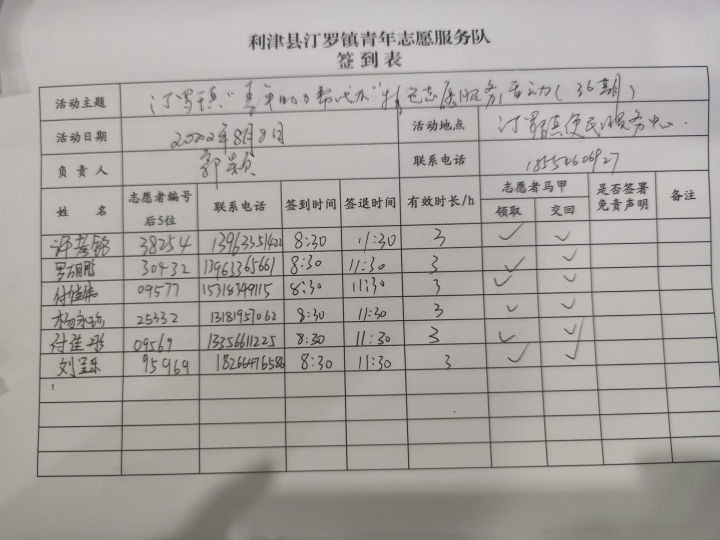 利津县汀罗镇青年志愿服务队
签到表
活动主题 汀罗镇"青年助力帮代办"志愿服务活动(36期)
活动日期 2022年8月8日 活动地点 汀罗镇便民服务中心
负责人 郭颖 联系电话
姓 名 志愿者编号后5位 联系电话 签到时间 签退时间 有效时长/h 志愿者马甲 领取 交回 是否签署免责声明 备注
38254 13963351422 8:30 11:30 3 ✓ ✓
30432 13963365661 8:30 11:30 3 ✓ ✓
09577 15318349115 8:30 11:30 3 ✓ ✓
杨永珍 25332 13181957062 8:30 11:30 3 ✓ ✓
09569 13356611225 8:30 11:30 3 ✓ ✓
95969 18266476586 8:30 11:30 3 ✓ ✓